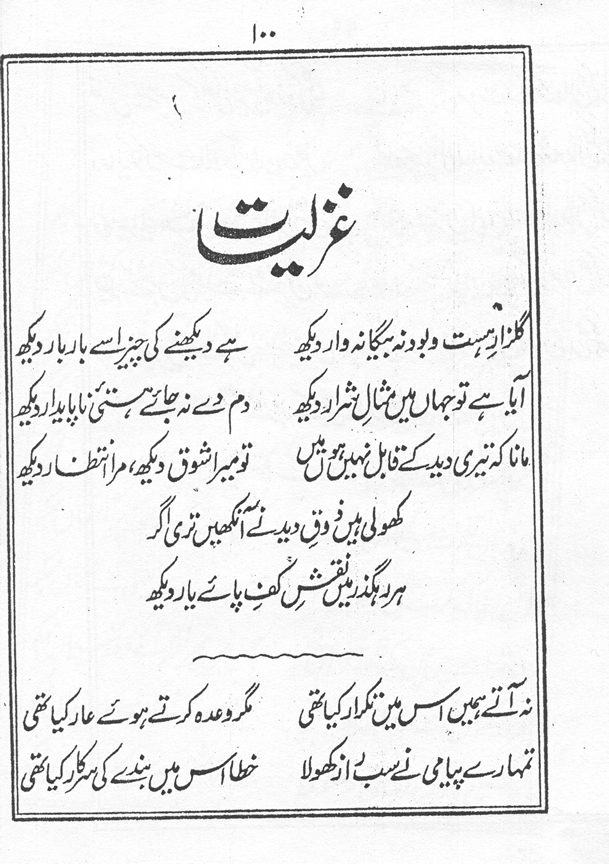 ۱۰۰
غزلیات
گلزارِ ہست و بود نہ بیگانہ وار دیکھ ہے دیکھنے کی چیز اسے بار بار دیکھ
آیا ہے تو جہاں میں مثالِ شرار دیکھ دم دے نہ جائے ہستیٔ ناپایدار دیکھ
مانا کہ تیری دید کے قابل نہیں ہوں میں تو میرا شوق دیکھ، مرا انتظار دیکھ
کھولی ہیں ذوقِ دید نے آنکھیں تری اگر
ہر رہگذر میں نقشِ کفِ پائے یار دیکھ
نہ آتے ہمیں اس میں تکرار کیا تھی مگر وعدہ کرتے ہوئے عار کیا تھی
تمہارے پیامی نے سب راز کھولا خطا اس میں بندے کی سرکار کیا تھی